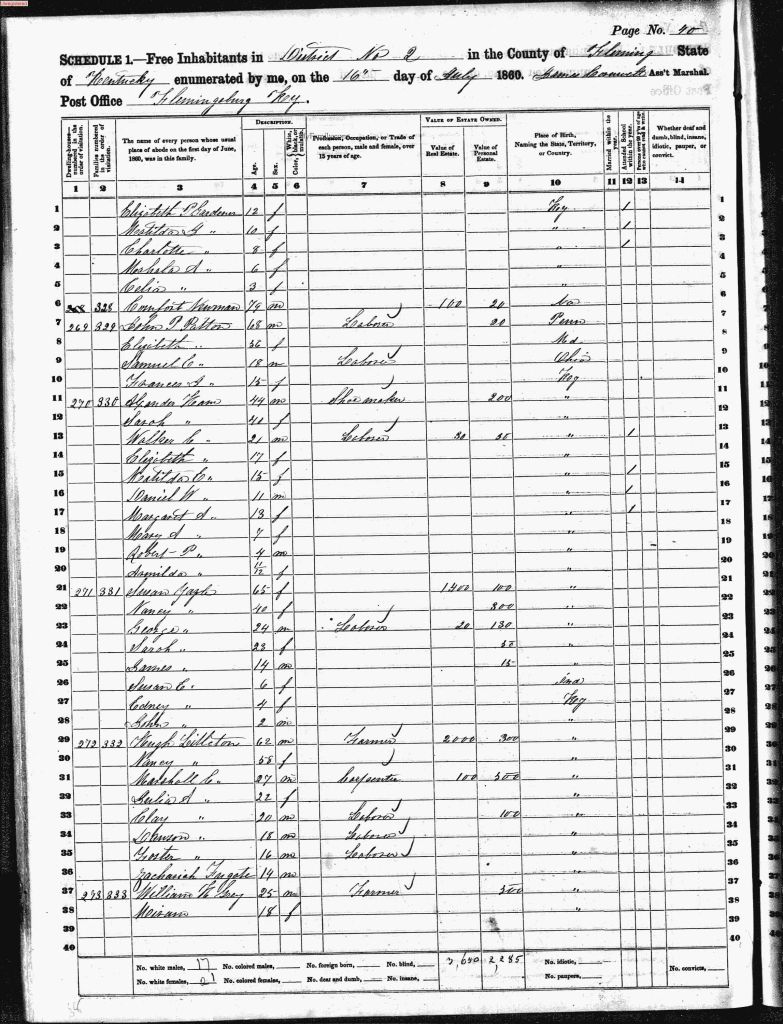 Page No. 40
SCHEDULE 1.—Free Inhabitants in District No 2 in the County of Fleming State
of Kentucky enumerated by me, on the 16" day of July 1860. Ass't Marshal.
Post Office Flemingsburg Key.
Dwelling-houses—numbered in the order of visitation.
Families numbered in the order of visitation.
The name of every person whose usual place of abode on the first day of June, 1860, was in this family.
DESCRIPTION.
Age.
Sex.
Color, { White, black, or mulatto.
Profession, Occupation, or Trade of each person, male and female, over 15 years of age.
VALUE OF ESTATE OWNED.
Value of Real Estate.
Value of Personal Estate.
Place of Birth, Naming the State, Territory, or Country.
Married within the year.
Attended School within the year.
Whether deaf and dumb, blind, insane, idiotic, pauper, or convict.
1 2 3 4 5 6 7 8 9 10 11 12 13 14
1 Elizibeth P Gardener 12 f Key / 1
2 Matilda G " 10 f " / 2
3 Charlotte " 8 f " / 3
4 Mahala A " 6 f " 4
5 Celia " 3 f 5
6 268 328 Comfort Newman 79 m 100 20 6
7 269 329 John P Patton 68 m Laborer 20 Penn 7
8 Elizibeth " 56 f Md 8
9 Samuel C " 18 m Laborer Ohio 9
10 Frances A " 15 f Key 10
11 270 330 44 m Shoe maker 200 " 11
12 Sarah " 41 f " 12
13 Walker C " 21 m Laborer 30 30 " / 13
14 Elizibeth " 17 f " 14
15 Matilda C " 15 f " / 15
16 Daniel W " 11 m " / 16
17 Margaret A " 13 f " / 17
18 Mary A " 7 f " 18
19 Robert P " 4 m " 19
20 " 11/12 f " 20
21 271 331 Susan 65 f 1400 100 " 21
22 Nancy " 40 f 300 " 22
23 George " 24 m Laborer 20 130 " 23
24 Sarah " 23 f " 24
25 James " 14 m 15 " 25
26 Susan C " 6 f Ind 26
27 " 4 f Key 27
28 John " 2 m " 28
29 272 332 Hugh Littleton 62 m Farmer 2000 300 " 29
30 Nancy " 55 f " 30
31 Marshall C " 27 m Carpenter 100 300 " 31
32 Julia A " 22 f " 32
33 Clay " 20 m Laborer 100 " 33
34 " 18 m Laborer " 34
35 Foster " 16 m Laborer " 35
36 Zachariah Fugate 14 m " 36
37 273 333 William H Grey 25 m Farmer 300 " 37
38 18 f " 38
39 39
40 40
No. white males, 17 No. colored males, No. foreign born, No. blind, 2,285 No. idiotic, No. convicts,
No. white females, 21 No. colored females, No. deaf and dumb, No. insane, No. paupers,